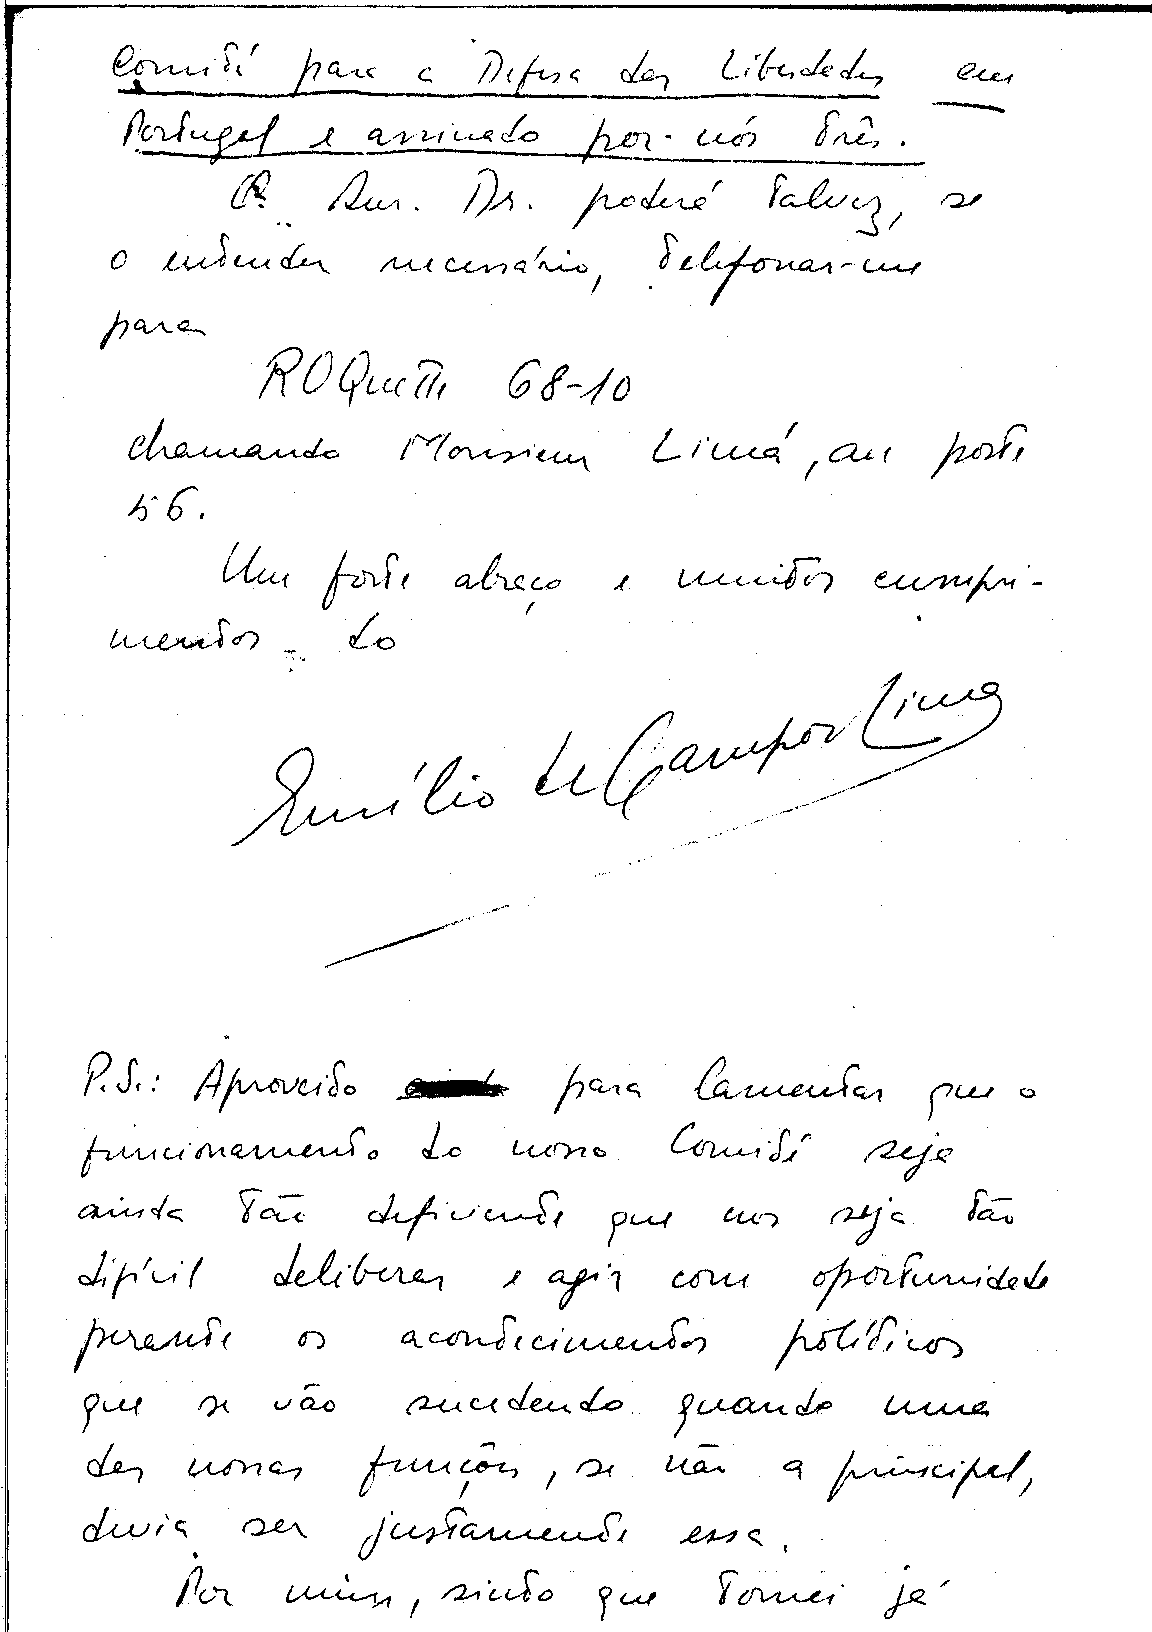 Comité para a Defesa das Liberdades em
Portugal e assinado por nós três.
O Snr. Dr. poderá talvez, se
o entender necessário, telefonar-me
para
ROQuette 68-10
chamando Monsieur Limá, au poste
56.
Um forte abraço e muitos cumpri-
mentos do
Emílio de Campos Lima
P.S.: Aproveito para lamentar que o
funcionamento do nosso Comité seja
ainda tão deficiente que nos seja tão
difícil deliberar e agir com oportunidade
perante os acontecimentos políticos
que se vão sucedendo quando uma
das nossas funções, se não a principal,
devia ser justamente essa.
Por mim, sinto que tomei já